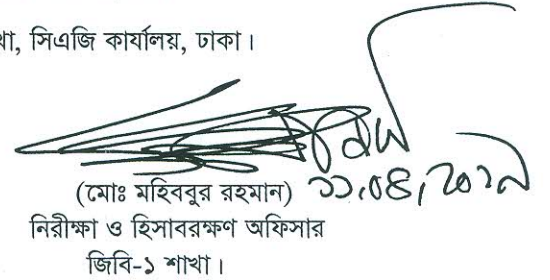 খা, সিএজি কার্যালয়, ঢাকা।
(মোঃ মহিববুর রহমান)
নিরীক্ষা ও হিসাবরক্ষণ অফিসার
জিবি-১ শাখা।